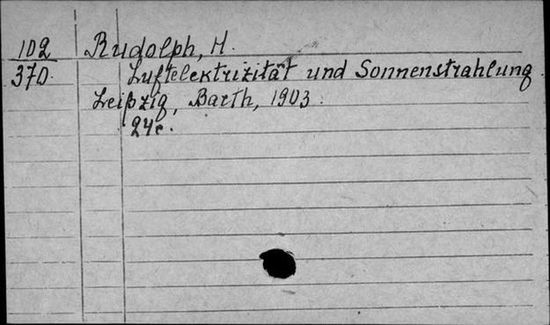 102 Rudolph, H.
370 Luftelektrizität und Sonnenstrahlung
Leipzig, Barth, 1903.